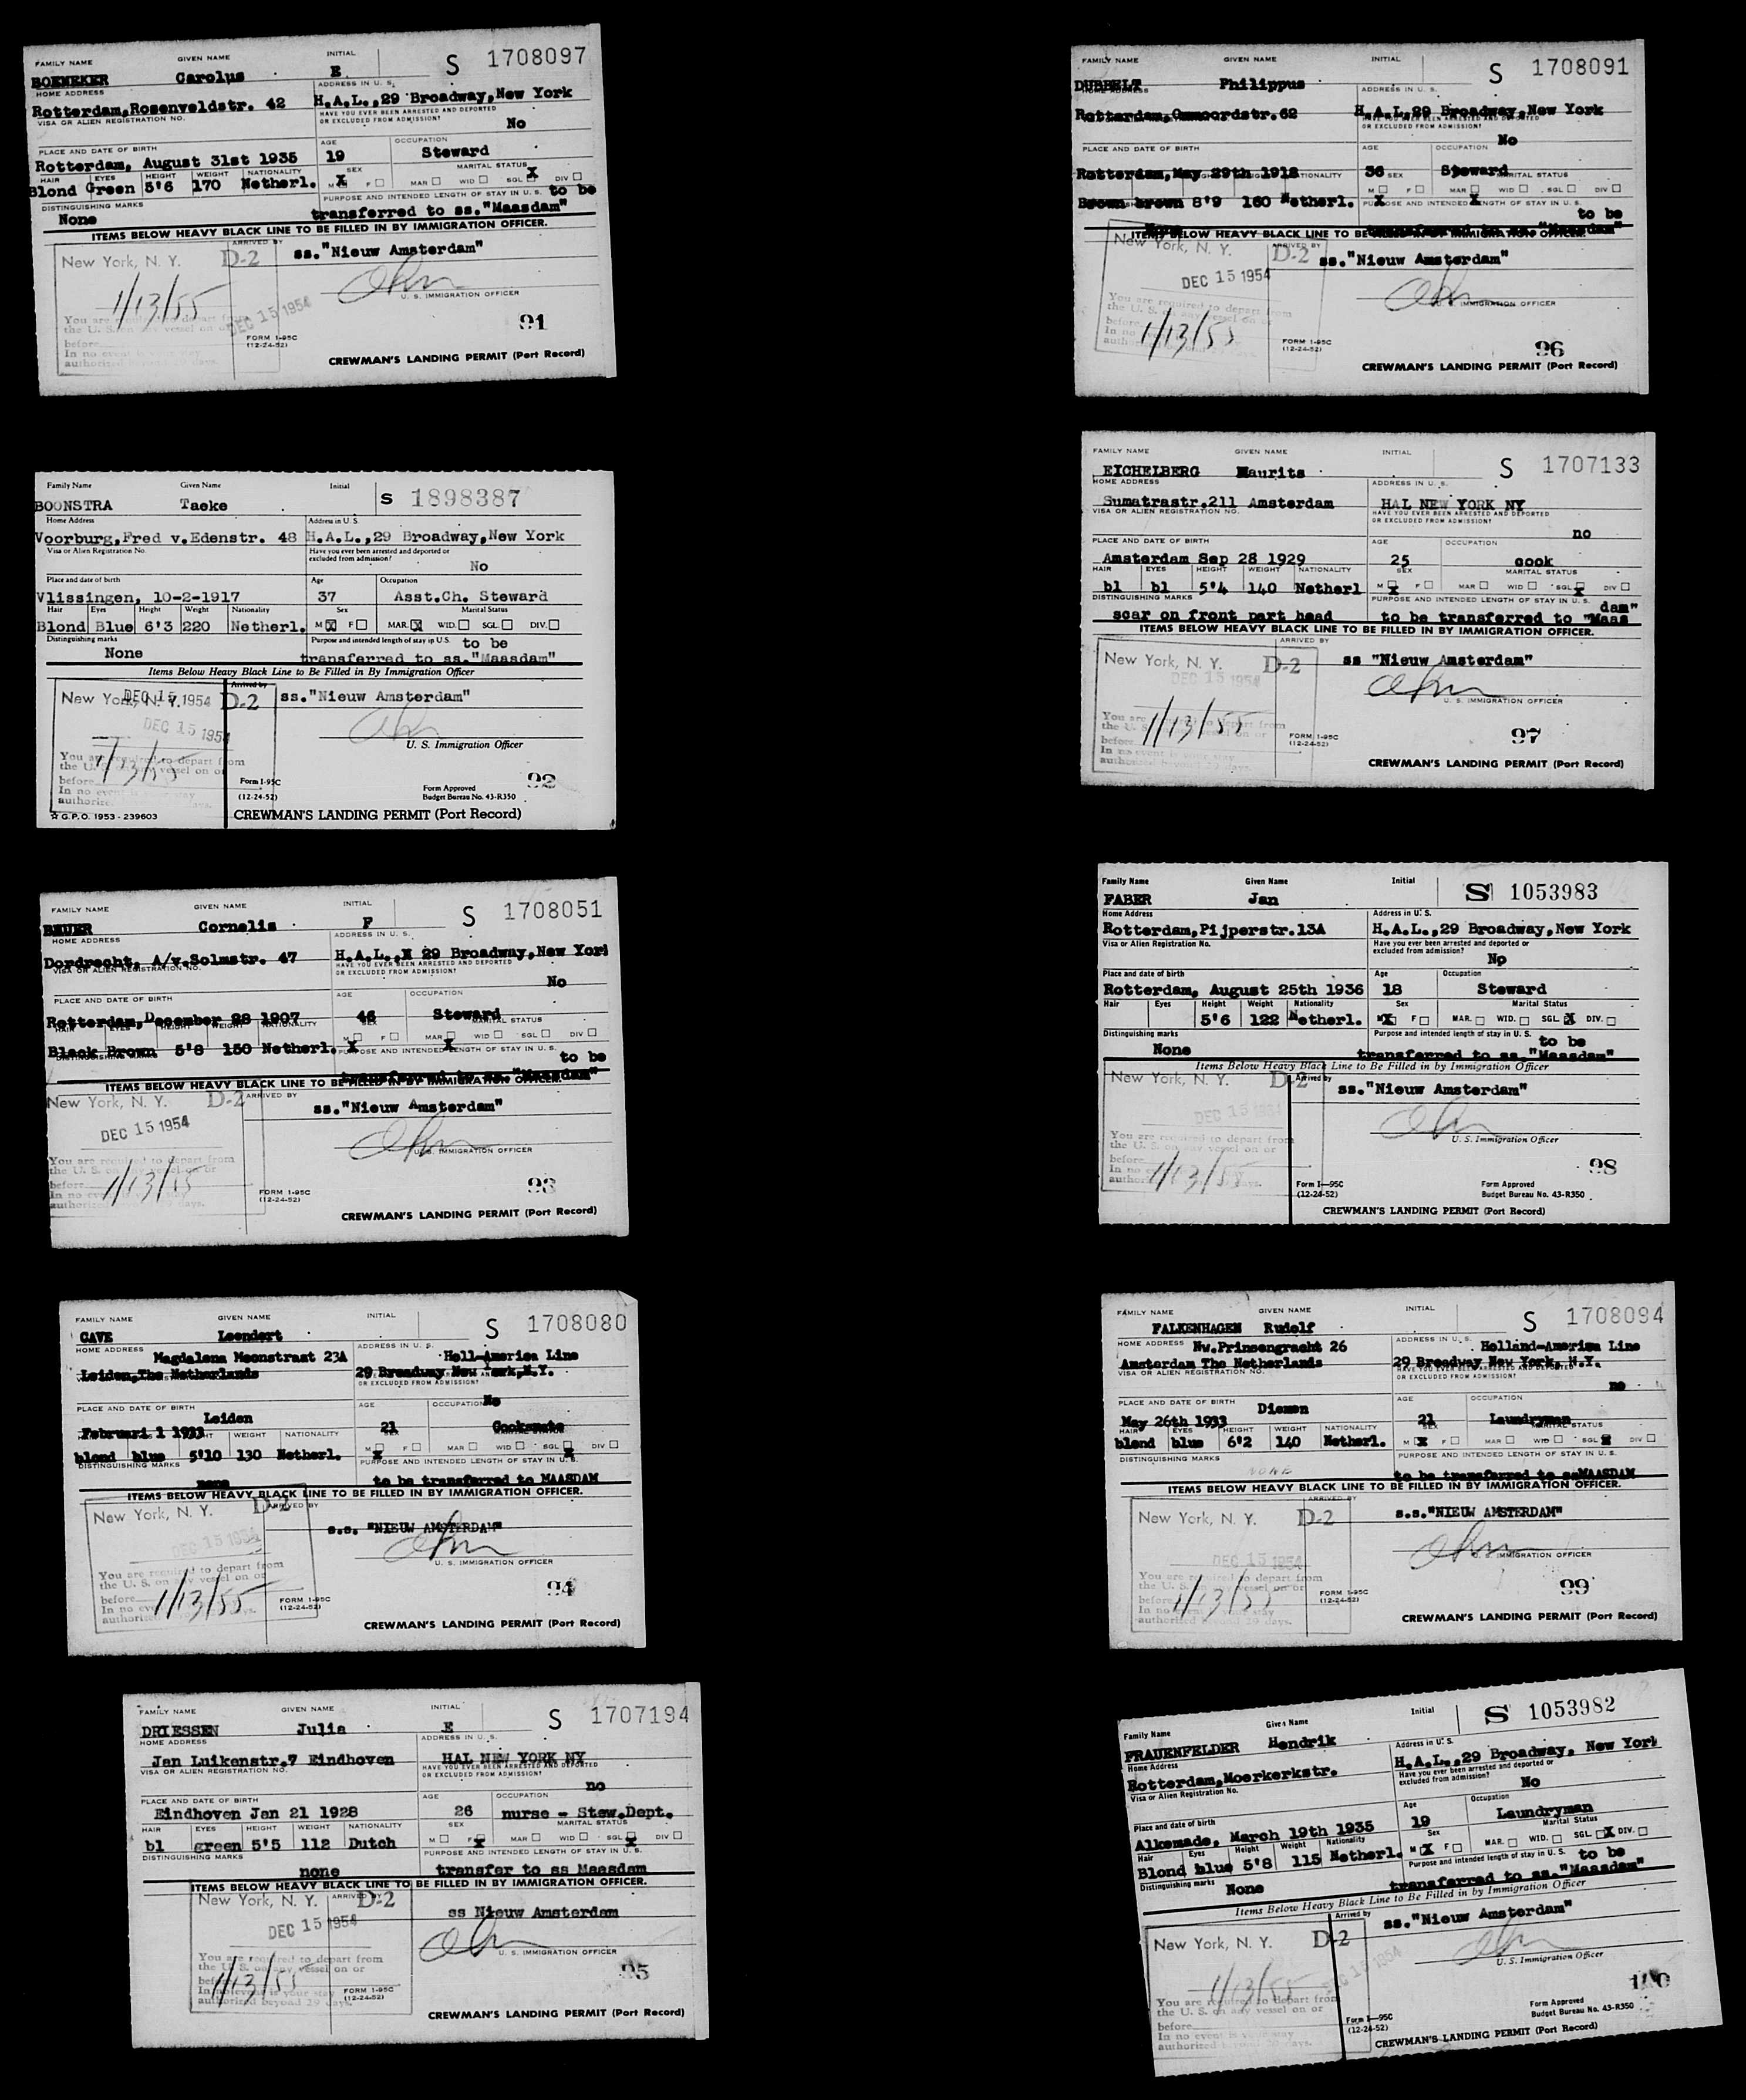 FAMILY NAME GIVEN NAME INITIAL S 1708097
BOEMEKER Carolus E
HOME ADDRESS ADDRESS IN U. S.
Rotterdam,Rosenveldstr. 42 H.A.L.,29 Broadway,New York
VISA OR ALIEN REGISTRATION NO. HAVE YOU EVER BEEN ARRESTED AND DEPORTED
OR EXCLUDED FROM ADMISSION?
No
PLACE AND DATE OF BIRTH AGE OCCUPATION
Rotterdam, August 31st 1935 19 Steward
HAIR EYES HEIGHT WEIGHT NATIONALITY SEX MARITAL STATUS
Blond Green 5'6 170 Netherl. M X F MAR WID SGL X DIV
DISTINGUISHING MARKS PURPOSE AND INTENDED LENGTH OF STAY IN U. S. to be
None transferred to ss."Maasdam"
ITEMS BELOW HEAVY BLACK LINE TO BE FILLED IN BY IMMIGRATION OFFICER.
ARRIVED BY
New York, N. Y. D-2 ss."Nieuw Amsterdam"
1/13/55 DEC 15 1954
U. S. IMMIGRATION OFFICER
You are required to depart from
the U. S. on any vessel on or
before
In no event is your stay
authorized days.
FORM I-95C
(12-24-52)
91
CREWMAN'S LANDING PERMIT (Port Record)
Family Name Given Name Initial S 1898387
BOONSTRA Taeke
Home Address Address in U. S.
Voorburg,Fred v.Edenstr. 48 H.A.L.,29 Broadway,New York
Visa or Alien Registration No. Have you ever been arrested and deported or
excluded from admission?
No
Place and date of birth Age Occupation
Vlissingen, 10-2-1917 37 Asst.Ch. Steward
Hair Eyes Height Weight Nationality Sex Marital Status
Blond Blue 6'3 220 Netherl. M X F MAR. X WID. SGL. DIV.
Distinguishing marks Purpose and intended length of stay in U.S. to be
None transferred to ss."Maasdam"
Items Below Heavy Black Line to Be Filled in By Immigration Officer
Arrived by
New York, N. Y. DEC 15 1954 D-2 ss."Nieuw Amsterdam"
DEC 15 1954
U. S. Immigration Officer
You are required to depart from
the U. S. on any vessel on or
before 1/13/55
In no event is your stay
authorized days.
Form I-95C
(12-24-52)
Form Approved
Budget Bureau No. 43-R350
92
☆ G.P.O. 1953 - 239603 CREWMAN'S LANDING PERMIT (Port Record)
FAMILY NAME GIVEN NAME INITIAL S 1708051
BEUER Cornelis F
HOME ADDRESS ADDRESS IN U. S.
Dordrecht, A/v.Solmstr. 47 H.A.L.,N 29 Broadway,New York
VISA OR ALIEN REGISTRATION NO. HAVE YOU EVER BEEN ARRESTED AND DEPORTED
OR EXCLUDED FROM ADMISSION?
No
PLACE AND DATE OF BIRTH AGE OCCUPATION
Rotterdam,December 28 1907 46 Steward
HAIR EYES HEIGHT WEIGHT NATIONALITY SEX MARITAL STATUS
M F MAR WID SGL DIV
Black Brown 5'8 150 Netherl. X X
DISTINGUISHING MARKS PURPOSE AND INTENDED LENGTH OF STAY IN U. S.
to be
transferred to ss."Maasdam"
ITEMS BELOW HEAVY BLACK LINE TO BE FILLED IN BY IMMIGRATION OFFICER.
New York, N. Y. D-2 ARRIVED BY
ss."Nieuw Amsterdam"
DEC 15 1954
U. S. IMMIGRATION OFFICER
You are required to depart from
the U. S. on any vessel on or
before 1/13/55
In no event is your stay
authorized days.
FORM I-95C
(12-24-52)
93
CREWMAN'S LANDING PERMIT (Port Record)
FAMILY NAME GIVEN NAME INITIAL S 1708080
CAVE Leendert
HOME ADDRESS ADDRESS IN U. S.
Magdalena Moonstraat 23A Holl-America Line
Leiden,The Netherlands 29 Broadway New York,N.Y.
OR EXCLUDED FROM ADMISSION?
PLACE AND DATE OF BIRTH AGE OCCUPATION No
Leiden
Februari 1 1933 21 Cooksmate
HEIGHT WEIGHT NATIONALITY M X F MAR WID SGL X DIV
blond blue 5'10 130 Netherl.
DISTINGUISHING MARKS PURPOSE AND INTENDED LENGTH OF STAY IN U. S.
none to be transferred to MAASDAM
ITEMS BELOW HEAVY BLACK LINE TO BE FILLED IN BY IMMIGRATION OFFICER.
New York, N. Y. D-2 ARRIVED BY
s.s. "NIEUW AMSTERDAM"
DEC 15 1954
U. S. IMMIGRATION OFFICER
You are required to depart from
the U. S. on any vessel on or
before 1/13/55
In no event
authorized days.
FORM I-95C
(12-24-52)
94
CREWMAN'S LANDING PERMIT (Port Record)
FAMILY NAME GIVEN NAME INITIAL S 1707194
DRIESSEN Julia E
HOME ADDRESS ADDRESS IN U. S.
Jan Luikenstr.7 Eindhoven HAL NEW YORK NY
VISA OR ALIEN REGISTRATION NO. HAVE YOU EVER BEEN ARRESTED AND DEPORTED
OR EXCLUDED FROM ADMISSION?
no
PLACE AND DATE OF BIRTH AGE OCCUPATION
Eindhoven Jan 21 1928 26 nurse - Stew.Dept.
HAIR EYES HEIGHT WEIGHT NATIONALITY SEX MARITAL STATUS
bl green 5'5 112 Dutch M F X MAR WID SGL X DIV
DISTINGUISHING MARKS PURPOSE AND INTENDED LENGTH OF STAY IN U. S.
none transfer to ss Maasdam
ITEMS BELOW HEAVY BLACK LINE TO BE FILLED IN BY IMMIGRATION OFFICER.
New York, N. Y. ARRIVED BY D-2
ss Nieuw Amsterdam
DEC 15 1954
U. S. IMMIGRATION OFFICER
You are required to depart from
the U. S. on any vessel on or
before 1/13/55
In no event is your stay
authorized beyond 29 days.
FORM I-95C
(12-24-52)
95
CREWMAN'S LANDING PERMIT (Port Record)
FAMILY NAME GIVEN NAME INITIAL S 1708091
DUBBELT Philippus
HOME ADDRESS ADDRESS IN U. S.
Rotterdam,Ommoordstr.62 H.A.L.29 Broadway,New York
HAVE YOU EVER BEEN ARRESTED AND DEPORTED
OR EXCLUDED FROM ADMISSION?
No
PLACE AND DATE OF BIRTH AGE OCCUPATION
Rotterdam,May 29th 1918 36 Steward
NATIONALITY SEX MARITAL STATUS
M F MAR WID SGL DIV
Brown brown 8'9 160 Netherl. X X
PURPOSE AND INTENDED LENGTH OF STAY IN U. S.
to be
None transferred to ss."Maasdam"
ITEMS BELOW HEAVY BLACK LINE TO BE FILLED IN BY IMMIGRATION OFFICER.
New York, N. Y. D-2 ARRIVED BY
ss."Nieuw Amsterdam"
DEC 15 1954
U. S. IMMIGRATION OFFICER
You are required to depart from
the U. S. on any vessel on or
before 1/13/55
In no
FORM I-95C
(12-24-52)
96
CREWMAN'S LANDING PERMIT (Port Record)
FAMILY NAME GIVEN NAME INITIAL S 1707133
EICHELBERG Maurits
HOME ADDRESS ADDRESS IN U. S.
Sumatrastr.211 Amsterdam HAL NEW YORK NY
VISA OR ALIEN REGISTRATION NO. HAVE YOU EVER BEEN ARRESTED AND DEPORTED
OR EXCLUDED FROM ADMISSION?
no
PLACE AND DATE OF BIRTH AGE OCCUPATION
Amsterdam Sep 28 1929 25 cook
HAIR EYES HEIGHT WEIGHT NATIONALITY SEX MARITAL STATUS
bl bl 5'4 140 Netherl M X F MAR WID SGL X DIV
DISTINGUISHING MARKS PURPOSE AND INTENDED LENGTH OF STAY IN U. S. dam"
scar on front part head to be transferred to "Maas
ITEMS BELOW HEAVY BLACK LINE TO BE FILLED IN BY IMMIGRATION OFFICER.
ARRIVED BY
New York, N. Y. D-2 ss "Nieuw Amsterdam"
DEC 15 1954
U. S. IMMIGRATION OFFICER
You are required to depart from
the U. S. on any vessel on or
before 1/13/55
In no event is your stay
authorized beyond 29 days.
FORM I-95C
(12-24-52)
97
CREWMAN'S LANDING PERMIT (Port Record)
Family Name Given Name Initial S 1053983
FABER Jan
Home Address Address in U. S.
Rotterdam,Pijperstr.13A H.A.L.,29 Broadway,New York
Visa or Alien Registration No. Have you ever been arrested and deported or
excluded from admission?
No
Place and date of birth Age Occupation
Rotterdam, August 25th 1936 18 Steward
Hair Eyes Height Weight Nationality Sex Marital Status
5'6 122 Netherl. M X F MAR. WID. SGL. X DIV.
Distinguishing marks Purpose and intended length of stay in U. S. to be
None transferred to ss."Maasdam"
Items Below Heavy Black Line to Be Filled in by Immigration Officer
New York, N. Y. D-2 Arrived by
ss."Nieuw Amsterdam"
DEC 15 1954
U. S. Immigration Officer
You are required to depart from
the U. S. on any vessel on or
before 1/13/55
In no
authorized days.
Form I—95C
(12-24-52)
Form Approved
Budget Bureau No. 43-R350
98
CREWMAN'S LANDING PERMIT (Port Record)
FAMILY NAME GIVEN NAME INITIAL S 1708094
FALKENHAGEN Rudolf
HOME ADDRESS Nw.Prinsengracht 26 ADDRESS IN U. S. Holland-America Line
Amsterdam The Netherlands 29 Broadway New York, N.Y.
VISA OR ALIEN REGISTRATION NO. HAVE YOU EVER BEEN ARRESTED AND DEPORTED
OR EXCLUDED FROM ADMISSION?
no
PLACE AND DATE OF BIRTH Diemen AGE OCCUPATION
May 26th 1933 21 Laundryman
HAIR EYES HEIGHT WEIGHT NATIONALITY SEX MARITAL STATUS
blond blue 6'2 140 Netherl. M X F MAR WID SGL X DIV
DISTINGUISHING MARKS PURPOSE AND INTENDED LENGTH OF STAY IN U. S.
NONE to be transferred to ssMAASDAM
ITEMS BELOW HEAVY BLACK LINE TO BE FILLED IN BY IMMIGRATION OFFICER.
ARRIVED BY
New York, N. Y. D-2 s.s."NIEUW AMSTERDAM"
DEC 15 1954
U. S. IMMIGRATION OFFICER
You are required to depart from
the U. S. on any vessel on or
before 1/13/55
In no event is your stay
authorized beyond 29 days.
FORM I-95C
(12-24-52)
99
CREWMAN'S LANDING PERMIT (Port Record)
Family Name Given Name Initial S 1053982
FRAUENFELDER Hendrik
Home Address Address in U. S.
Rotterdam,Moerkerkstr. H.A.L.,29 Broadway, New York
Visa or Alien Registration No. Have you ever been arrested and deported or
excluded from admission?
No
Place and date of birth Age Occupation
Alkemade, March 19th 1935 19 Laundryman
Hair Eyes Height Weight Nationality Sex Marital Status
Blond blue 5'8 115 Netherl. M X F MAR. WID. SGL. X DIV.
Distinguishing marks Purpose and intended length of stay in U. S. to be
None transferred to ss."Maasdam"
Items Below Heavy Black Line to Be Filled in by Immigration Officer
Arrived by
New York, N. Y. D-2 ss."Nieuw Amsterdam"
DEC 15 1954
U. S. Immigration Officer
1/13/55
You are required to depart from
the U. S. on any vessel on or
before
In no event is your stay
authorized beyond 29 days.
Form I—95C
(12-24-52)
Form Approved
Budget Bureau No. 43-R350
100
CREWMAN'S LANDING PERMIT (Port Record)